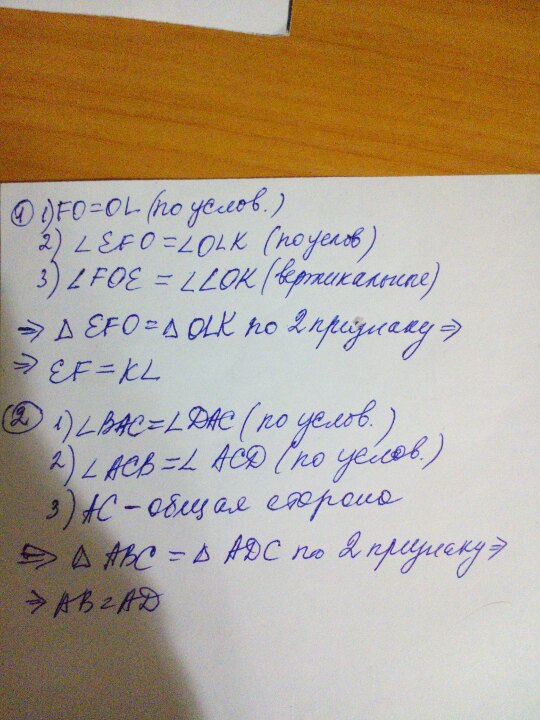 ① 1) FO=OL (по услов.)
2) ∠EFO=∠OLK (по услов)
3) ∠FOE = ∠LOK (вертикальные)
⇒ △ EFO=△ OLK по 2 признаку ⇒
⇒ EF=KL
② 1) ∠BAC=∠DAC (по услов.)
2) ∠ACB=∠ ACD (по услов.)
3) AC – общая сторона
⇒ △ ABC = △ ADC по 2 признаку ⇒
⇒ AB=AD